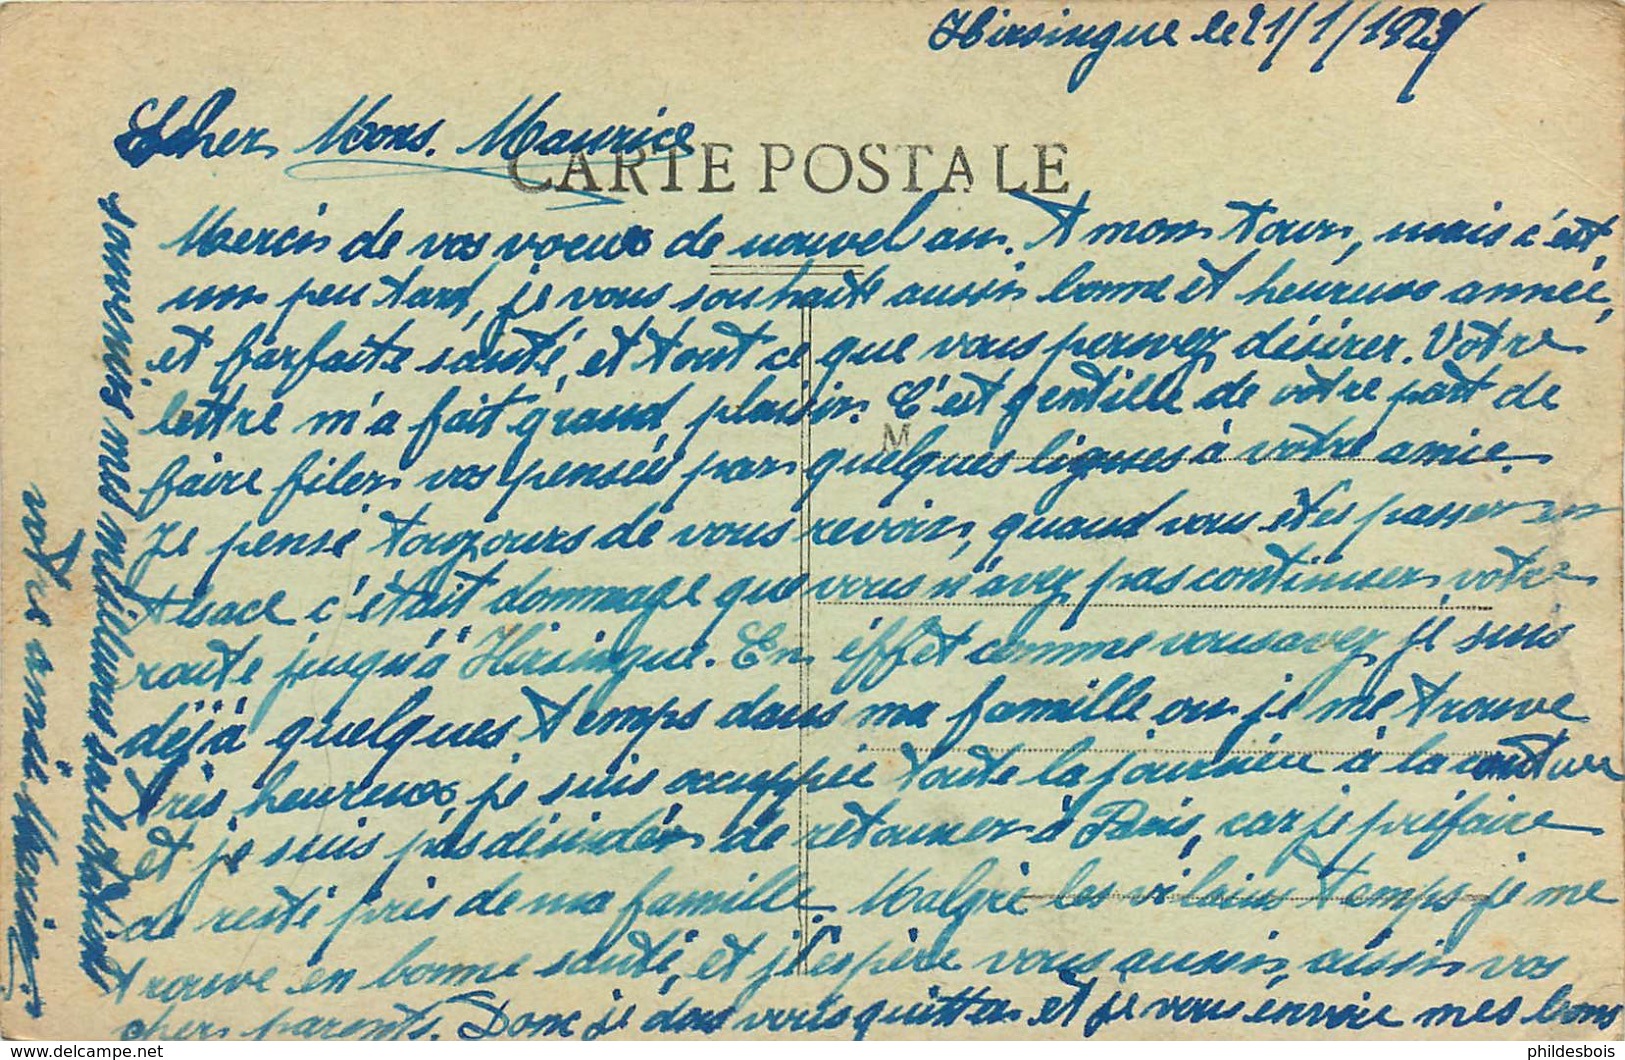 Hirsingue le 21/1/1929
Cher Mons. Maurice
CARTE POSTALE
Mercis de vos voeux de nouvel an. A mon tour, mais c'est
un peu tard, je vous souhaite aussi bonne et heureuse année,
et parfaite santé, et tout ce que vous pouvez désirer. Votre
lettre m'a fait grand plaisir. C'est gentille de votre part de
M
faire filer vos pensées par quelques lignes à votre amie.
Je pense toujours de vous revoir, quand vous êtes passer en
Alsace c'était dommage que vous n'avez pas continuer votre
route jusqu'à Hirsingue. En effet comme vous savez je suis
déjà quelques temps dans ma famille ou je me trouve
très heureux, je suis occuppée toute la journée à la couture
et je suis pas décider de retourner à Paris, car je préfaire
de resté près de ma famille. Malgré les vilains temps je me
trouve en bonne santé, et j'espère vous aussi, aussi vos
chers parents. Donc je dois vous quitter et je vous envoie mes bons
souvenirs mes meilleures salutations
votre amie
phildesbois